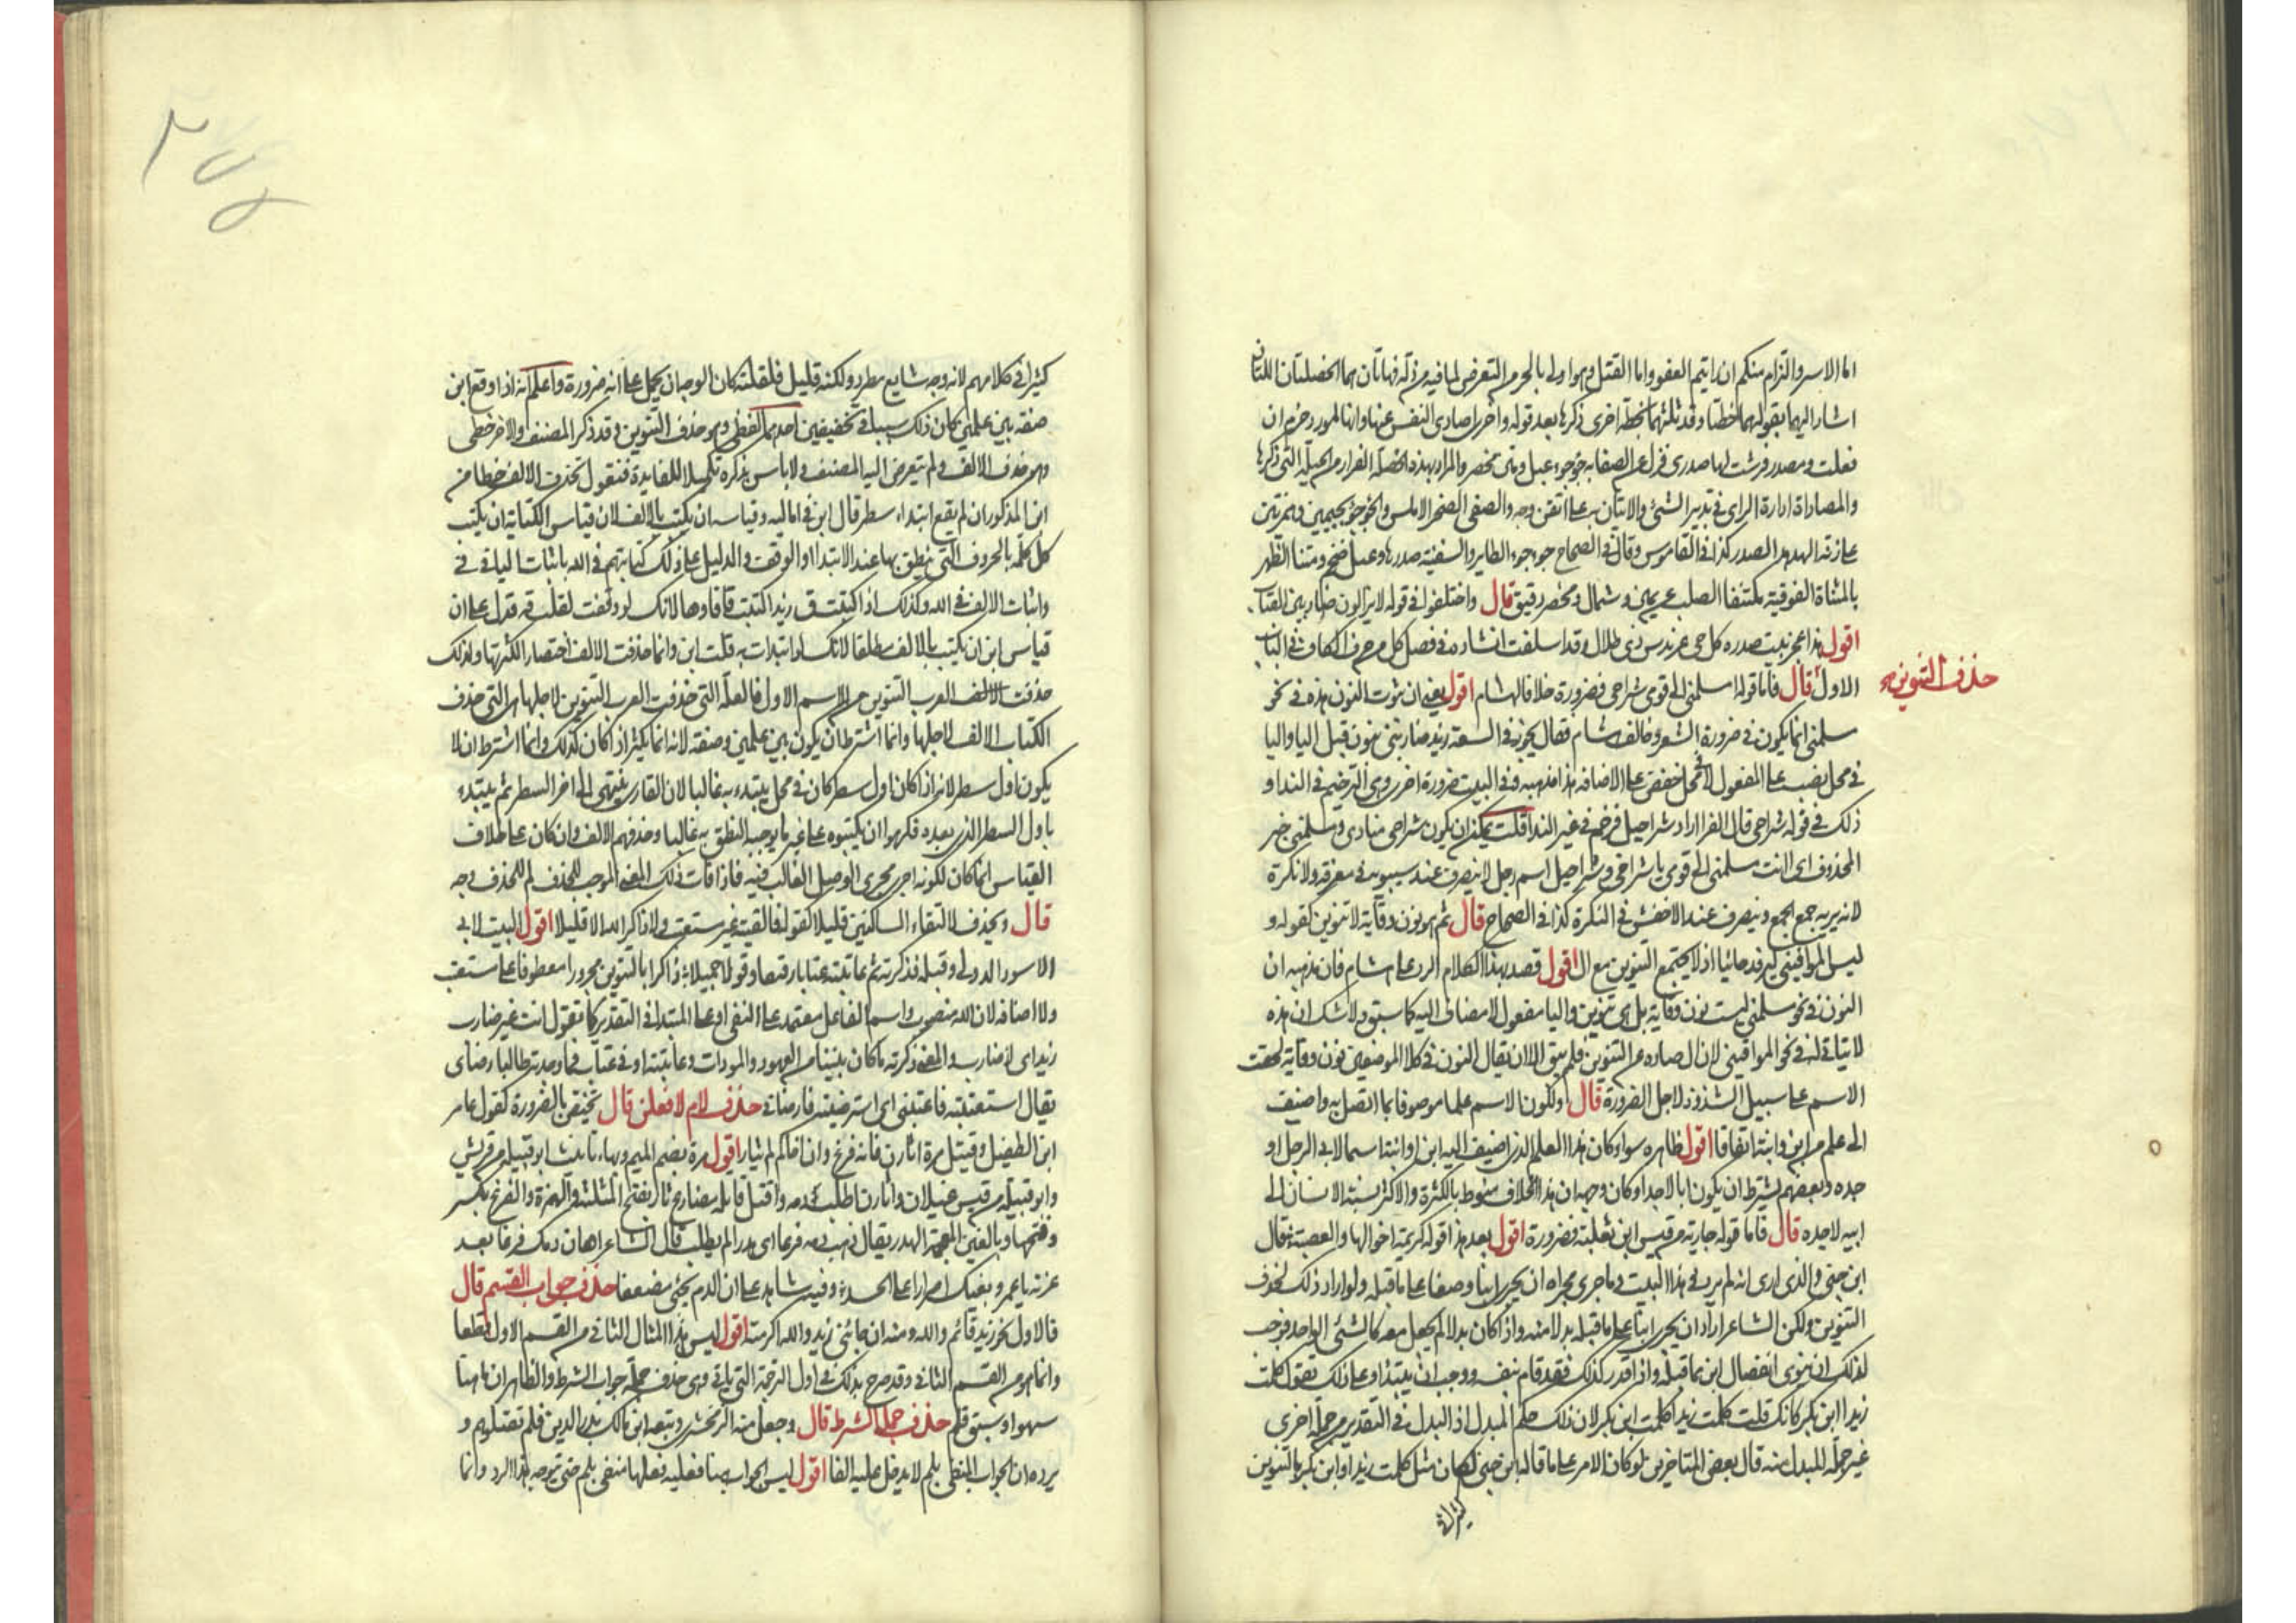 اما الاسر والتزام منكم ان رايتم العفو واما القتل وهو اولى بالحر من التعرض لما فيه مذلة فهاتان هما الخصلتان اللتان
اشار اليهما بقوله هما خطتا وقد ثلثهما بخطة اخرى ذكرها بعد قوله واخرى اصادى النفس عنها وانها لمورد حزم ان
فعلت ومصدر فرشت لها صدرى فزل عن الصفا به جؤجؤ عبل ومتن مخصر والمراد بهذه الخصلة الفرار من الحيلة التي ذكرها
والمصاداة ادارة الراى في تدبير الشئ والاتيان به على اتقن وجه والصفى الصخر الاملس والجؤجؤ بجيمين وهمزتين
على زنة الهدهد الصدر كذا في القاموس وقال في الصحاح جوجوء الطاير والسفينة صدرها وعبل ضخم ومتنا الظهر
بالمثناة الفوقية مكتنفا الصلب عن يمين وشمال ومخصر دقيق قال واختلفوا في قوله لا يزالون ضاربين القباب
اقول هذا عجز بيت صدره كل حى عرندس ذى طلال وقد اسلفت انشاده في فصل كل من حرف الكاف في الباب
الاول قال فاما قوله اسلمنى الى قومى شراحى فضرورة خلافا لهشام اقول يعنى ان ثبوت النون هذه في نحو
حذف التنوين
سلمنى انما يكون في ضرورة الشعر وخالف هشام فقال يجوز في السعة زيد ضاربنى بنون قبل اليا واليا
في محل نصب على المفعول لا في محل خفض على الاضافه هذا مذهبه وفي البيت ضرورة اخرى وهى الترخيم في الندا و
ذلك في قوله شراحى قال الفرا اراد شراحيل فرخم في غير الندا قلت يمكن ان يكون شراحى منادى ومسلمنى خبر
المحذوف اى اانت مسلمنى الى قومى يا شراحى وشراحيل اسم رجل لا ينصرف عند سيبويه في معرفة ولا نكرة
لانه بزنة جمع الجمع وينصرف عند الاخفش في النكرة كذا في الصحاح قال ثم هو نون وقاية لا تنوين كقوله و
ليس الموافينى ليرفد خائبا اذ لا يجتمع التنوين مع ال اقول قصد بهذا الكلام الرد على هشام فان مذهبه ان
النون في نحو مسلمنى ليست نون وقاية بل هى تنوين واليا مفعول لا مضاف اليه كما سبق ولا شك ان هذه
لا يتاتى له في نحو الموافينى لان ال صاده عن التنوين فلم يبق الا ان يقال النون في كلا الموضعين نون وقاية لحقت
الاسم على سبيل الشذوذ لاجل الضرورة قال ولكون الاسم علما موصوفا بما اتصل به واضيف
الى علم من ابن وابنة اتفاقا اقول ظاهره سواء كان هذا العلم الذى اضيف اليه ابن او ابنة اسما لابى الرجل او
جده وبعضهم يشترط ان يكون ابا لا جدا وكان وجهه ان هذا الخلاف منوط بالكثرة والاكثر نسبة الانسان الى
ابيه لا جده قال فاما قوله جارية من قيس ابن ثعلبة فضرورة اقول بعد هذا قوله كريمة اخوالها والعصبة قال
ابن جنى والذى ارى انه لم يرد في هذا البيت وما جرى مجراه ان يجرى ابنا وصفا على ما قبله ولو اراد ذلك لحذف
التنوين ولكن الشاعر اراد ان يجرى ابنا على ما قبله بدلا منه واذا كان بدلا لم يجعل معه كالشئ الواحد فوجب
لذلك ان ينوى انفصال ابن مما قبله واذا قدر كذلك فقد قام بنفسه ووجب ان يبتدا وعلى ذلك تقول كلمت
زيدا ابن بكر كانك قلت كلمت زيدا كلمت ابن بكر لان ذلك حكم المبدل اذ البدل في التقدير من جملة اخرى
غير جملة المبدل منه قال بعض المتاخرين لو كان الامر على ما قاله ابن جنى لكان مثل كلمت زيدا وابن بكر بالتنوين
كثيرا في
كثيرا في كلامهم لانه وجه شايع مطرد ولكنه قليل فلقلته كان الوجه ان يحمل على انه ضرورة واعلم انه اذا وقع ابن
صفة بين علمين كان ذلك سببا في تخفيفين احدهما لفظى وهو حذف التنوين وقد ذكره المصنف والاخر خطى
وهو حذف الالف ولم يتعرض اليه المصنف ولا باس بذكره تكميلا للفايدة فنقول تحذف الالف خطا من
ابن المذكور ان لم يقع ابتداء سطر قال ابن في اماليه وقياسه ان يكتب بالالف لان قياس الكتابة ان يكتب
كل كلمة بالحروف التي ينطق بها عند الابتدا او الوقف والدليل على ذلك كتابتهم
واثبات الالف في الله وكذلك اذا كتبت ق زيدا كتبت قافا وها لانك لو وقفت لقلت قه فدل على ان
قياس ابن ان يكتب بالالف مطلقا لانك لو ابتدات به قلت ابن وانما حذفت الالف اختصارا لكثرتها ولذلك
حذفت العرب التنوين من الاسم الاول فالعلة التي حذفت العرب التنوين لاجلها هى التي حذف
الكتاب الالف لاجلها وانما اشترط ان يكون بين علمين وصفة لانه انما يكثر اذا كان كذلك وانما اشترط ان لا
يكون اول سطر لانه اذا كان اول سطر كان في محل يبتدء به غالبا لان القارى ينتهى الى اخر السطر ثم يبتدء
باول السطر الذى بعده فكرهوا ان يكتبوه على غير ما يوجبه النطق به غالبا وحذفهم الالف وان كان على خلاف
القياس انما كان لكونه اجرى مجرى الوصل الغالب فيه فاذا فات ذلك المعنى الموجب للحذف لم للحذف وجه
قال ويحذف لالتقاء الساكنين قليلا كقوله فالفيته غير مستعتب ولا ذاكر الله الا قليلا اقول البيت لابى
الاسود الدولى وقبله فذكرته ثم عاتبته عتابا رفيقا وقولا جميلا وذاكرا بالتنوين مجرورا معطوفا على مستعتب
ولا اضافه لان الله منصوب واسم الفاعل معتمد على النفى او على المبتدا في التقدير كما تقول انت غير ضارب
زيدا اى لا ضارب والمعنى ذكرته ما كان بيننا من العهود والمودات وعاتبته في عتاب فما وجدته طالبا رضاى
يقال استعتبته فاعتبنى اى استرضيته فارضانى حذف لام لافعلن قال تختص بالضرورة كقول عامر
ابن الطفيل وقتيل مرة اثارن فانه فرغ وان اخاكم لم يثار اقول مرة بضم الميم وبهاء تانيث ابو قبيلة من قريش
وابو قبيلة من قيس عيلان واثارن اطلب دمه واقتل قاتله مضارع ثار بفتح المثلثة والهمزة والفرغ بكسر
وفتحها وبالغين المعجمة الهدر يقال ذهب دمه فرغا اى هدرا لم يطلب قال الشاعر اهان دمك فرغا بعد
عزته يا عمرو بغيك اصرارا على الحسد وفيه شاهد على ان الدم يجئ مضعفا حذف جواب القسم قال
فالاول نحو زيد قائم والله ومنه ان جاءنى زيد والله اكرمته اقول ليس هذا المثال الثانى من القسم الاول قطعا
وانما هو من القسم الثانى وقد صرح بذلك في اول الترجمة التي ياتى وهى حذف جملة جواب الشرط والظاهر ان ما هنا
سهو او سبق قلم حذف جملة الشرط قال وجعل منه الزمخشرى وتبعه ابن مالك بدر الدين فلم تقتلوهم و
يرده ان الجواب المنفى بلم لا يدخل عليه الفا اقول ليس الجواب هنا فعليه فعلها منفى بلم حتى يتوجه هذا الرد وانما